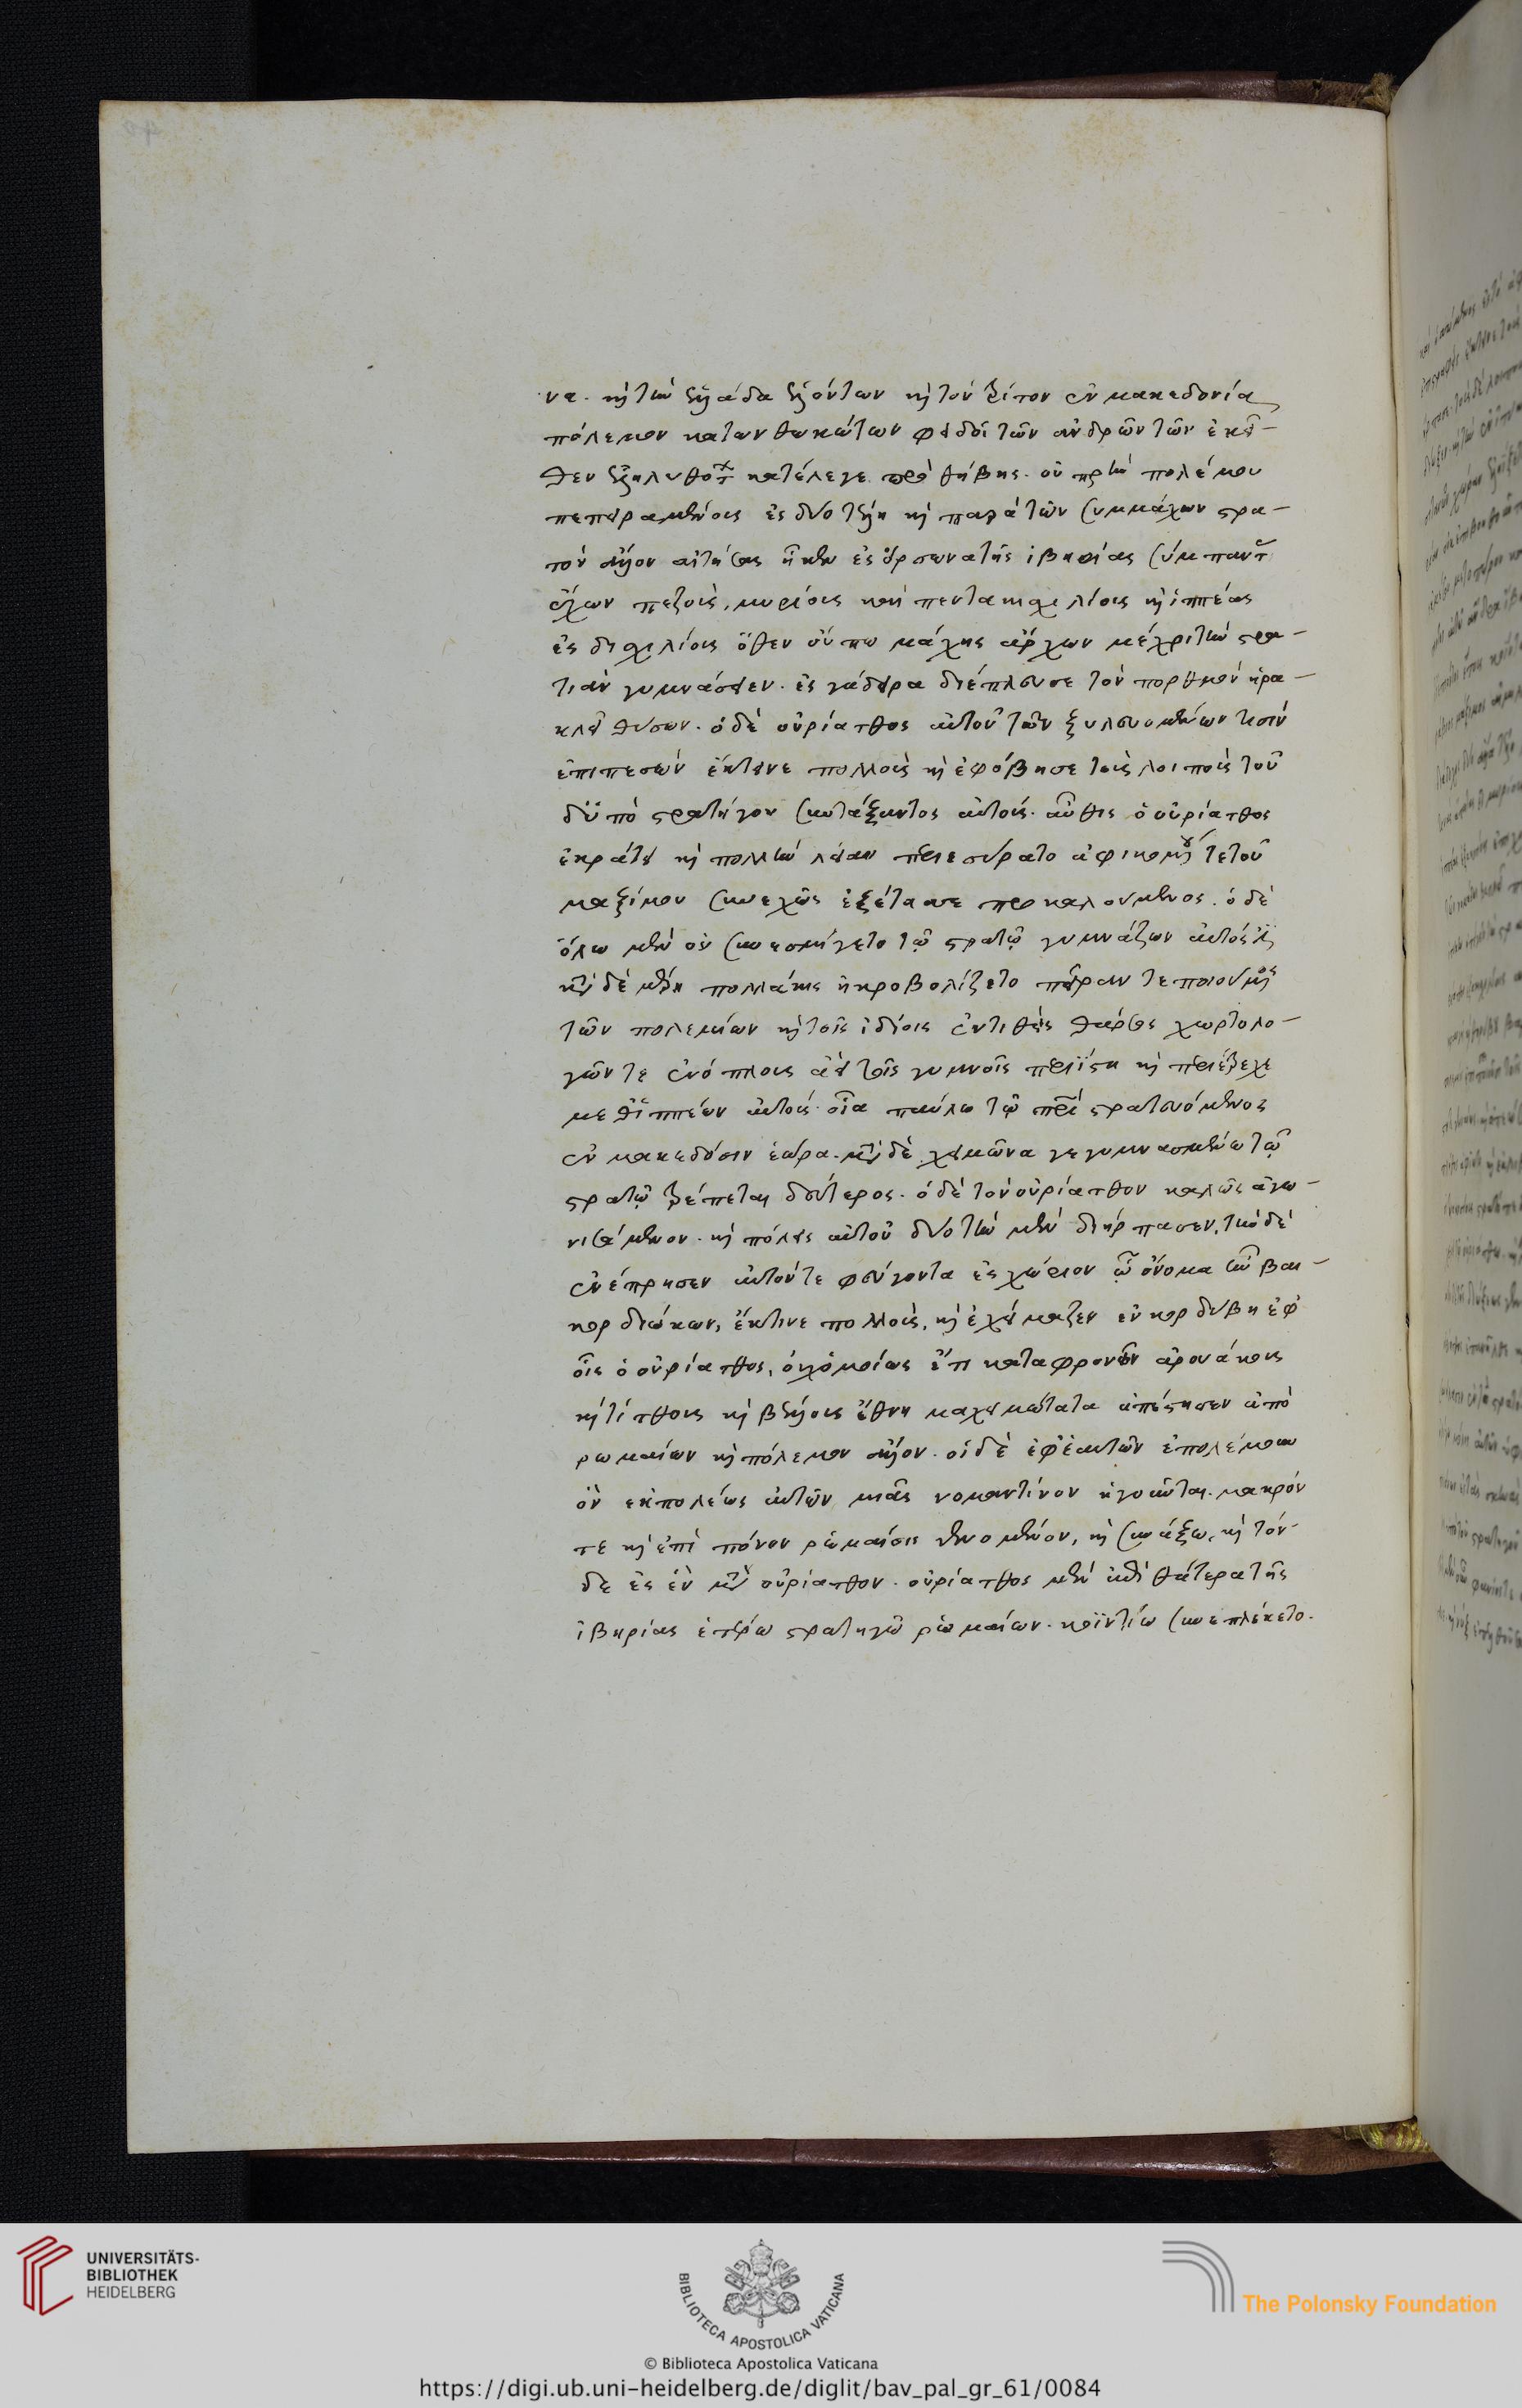 να. καὶ τὴν ἑλλάδα ἑλόντων καὶ τὸν τρίτον ἐν μακεδονία
πόλεμον κατωρθωκότων φειδοῖ τῶν ἀνδρῶν τῶν ἐκεῖ-
θεν ἐληλυθότων κατέλεγε πρωθήβης. οὐ πρὶν πολέμου
πεπειραμένους ἐς δύο τέλη καὶ παρὰ τῶν συμμάχων στρα-
τὸν ἄλλον αἰτήσας ἧκεν ἐς ὄρσωνα τῆς ἰβηρίας σύμπαντας
ἔχων πεζοὺς, μυρίους καὶ πεντακισχιλίους καὶ ἱππέας
ἐς δισχιλίους ὅθεν οὔπω μάχης ἄρχων μέχρι τὴν στρα-
τιὰν γυμνάσειεν. ἐς γάδειρα διέπλευσε τὸν πορθμὸν ἡρα-
κλεῖ θύσων. ὁ δὲ οὐρίατθος αὐτοῦ τῶν ξυλευομένων τισὶν
ἐπιπεσὼν ἔκτεινε πολλοὺς καὶ ἐφόβησε τοὺς λοιποὺς τοῦ
δ' ὑποστρατήγου συντάξαντος αὐτοὺς. αὖθις ὁ οὐρίατθος
ἐκράτει καὶ πολλὴν λείαν περιεσύρατο ἀφικομένου τε τοῦ
μαξίμου συνεχῶς ἐξέτασσε προκαλούμενος. ὁ δὲ
ὅλω μὲν οὐ συνεσμίγετο τῷ στρατῷ γυμνάζων αὐτοὺς ἔτι
κατὰ δὲ μέρη πολλάκις ἠκροβολίζετο πεῖραν τε ποιούμενος
τῶν πολεμίων καὶ τοῖς ἰδίοις ἐντιθεὶς θάρσος χωρτολο-
γῶν τε ἐνόπλους ἀεὶ τοῖς γυμνοῖς περιΐστη καὶ περιέτρεχε
μεθ' ἱππέων αὐτοὺς. οἷα παύλω τῷ πατρὶ στρατευόμενος
ἐν μακεδόσιν ἑώρα. μετὰ δὲ χειμῶνα γεγυμνασμένω τῷ
στρατῷ τρέπεται δεύτερος. ὁ δὲ τὸν οὐρίατθον καλῶς ἀγω-
νισάμενον. καὶ πόλεις αὐτοῦ δύο τὴν μὲν διήρπασεν, τὴν δὲ
ἐνέπρησεν αὐτόν τε φεύγοντα ἐς χώριον ᾧ ὄνομα ἦν βαι-
κορ διώκων, ἔκτινε πολλοὺς, καὶ ἐχείμαζεν ἐν κορδύβη ἐφ'
οἷς ὁ οὐρίατθος, οὐχ ὁμοίως ἔτι καταφρονῶν ἀρουάκους
καὶ τίτθους καὶ βελλοὺς ἔθνη μαχιμώτατα ἀπέστησεν ἀπὸ
ρωμαίων καὶ πόλεμον ἄλλον. οἱ δὲ ἐφ' ἑαυτῶν ἐπολέμουν
ὃν ἐκ πολέως αὐτῶν μιᾶς νομαντῖνον ἡγοῦνται. μακρόν
τε καὶ ἐπὶ πόνον ρωμαίοις γενόμενον, καὶ συνάξω, καὶ τόν-
δε ἐς ἓν μετ' οὐρίατθον. οὐρίατθος μὲν ἐπὶ θάτερα τῆς
ἰβηρίας ἑτέρω στρατηγῷ ρωμαίων. κοϊντίω συνεπλέκετο.
UNIVERSITÄTS-
BIBLIOTHEK
HEIDELBERG
BIBLIOTECA APOSTOLICA VATICANA
The Polonsky Foundation
© Biblioteca Apostolica Vaticana
https://digi.ub.uni-heidelberg.de/diglit/bav_pal_gr_61/0084